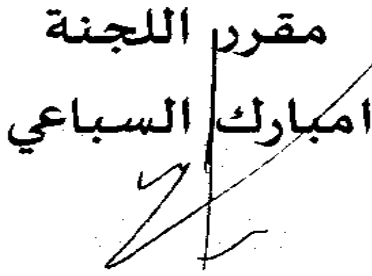 مقرر اللجنة
امبارك السباعي